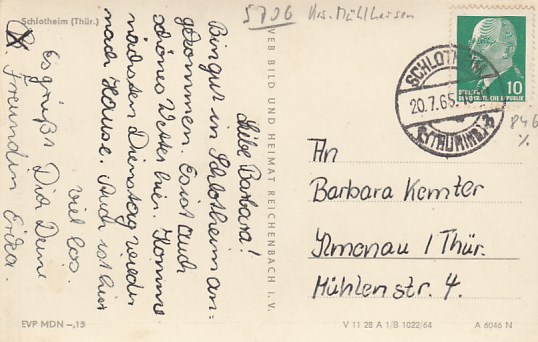 Schlotheim (Thür.)
5706 Krs. Mühlhausen
Liebe Barbara!
Bin gut in Schlotheim an-
gekommen. Es ist auch
schönes Wetter hier. Komme
nächsten Dienstag wieder
nach Hause. Auch ist hier
viel los.
Es grüßt Dich Deine
Freundin Erika.
VEB BILD UND HEIMAT REICHENBACH I. V.
SCHLOTHEIM
20.7.65
(THÜRINGEN)
10
DEUTSCHE DEMOKRATISCHE REPUBLIK
846
An
Barbara Kemter
Ilmenau / Thür.
Mühlenstr. 4.
EVP MDN –,15
V 11 28 A 1/B 1022/64
A 6046 N